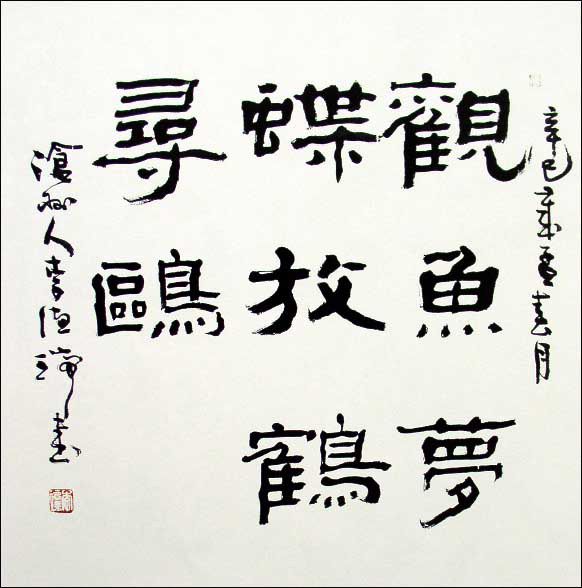 辛巳春月
觀魚夢
蝶放鶴
尋鷗
滄州人李德瑞書